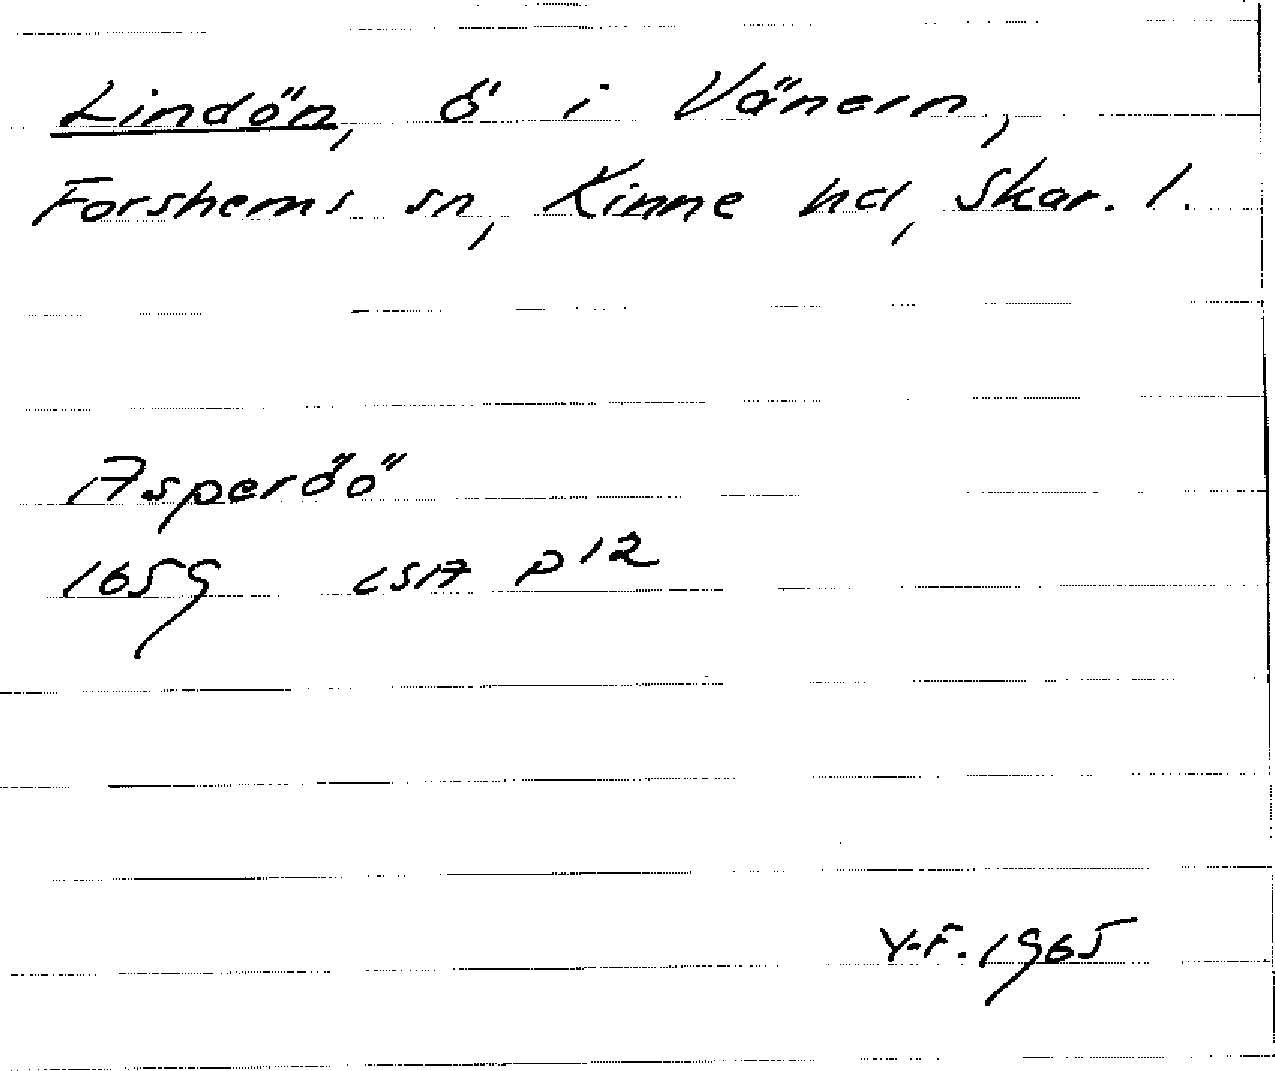 Lindön, ö i Vänern,
Forshems sn, Kinne hd, Skar. l.
Asperöö
1659 LSA P 12
Y-F. 1965